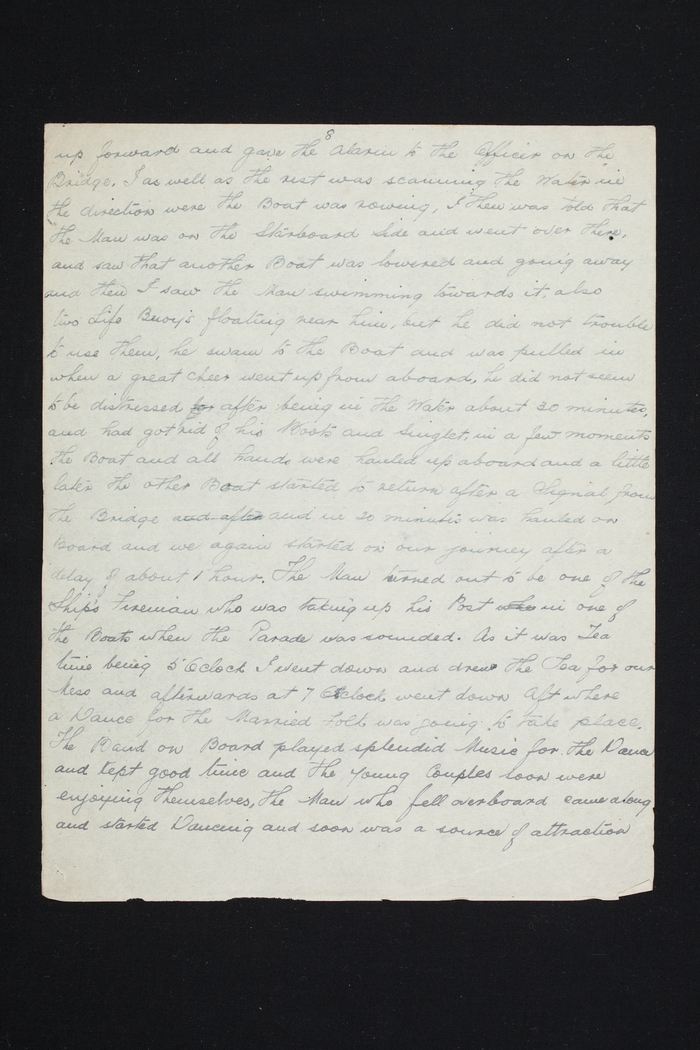 8
up forward and gave the alarm to the Officer on the
Bridge. I as well as the rest was scanning the Water in
the direction were the Boat was rowing, I then was told that
the Man was on the Starboard Side and went over there,
and saw that another Boat was lowered and going away
and then I saw the Man swimming towards it, also
two Life Buoy's floating near him, but he did not trouble
to use them, he swam to the Boat and was pulled in
when a great cheer went up from aboard, he did not seem
to be distressed for after being in the Water about 30 minutes,
and had got rid of his Boots and Singlet, in a few moments
the Boat and all hands were hauled up aboard and a little
later the other Boat started to return after a Signal from
the Bridge and after and in 20 minutes was hauled on
Board and we again started on our journey after a
delay of about 1 hour. The Man turned out to be one of the
Ship's Fireman who was taking up his Post who in one of
the Boats when the Parade was sounded. As it was Tea
time being 5 Oclock I went down and drew the Tea for our
Mess and afterwards at 7 Oclock went down Aft where
a Dance for the Married Folk was going to take place.
The Band on Board played splendid Music for the Dance
and kept good time and the young Couples soon were
enjoying themselves, the Man who fell overboard came along
and started Dancing and soon was a source of attraction